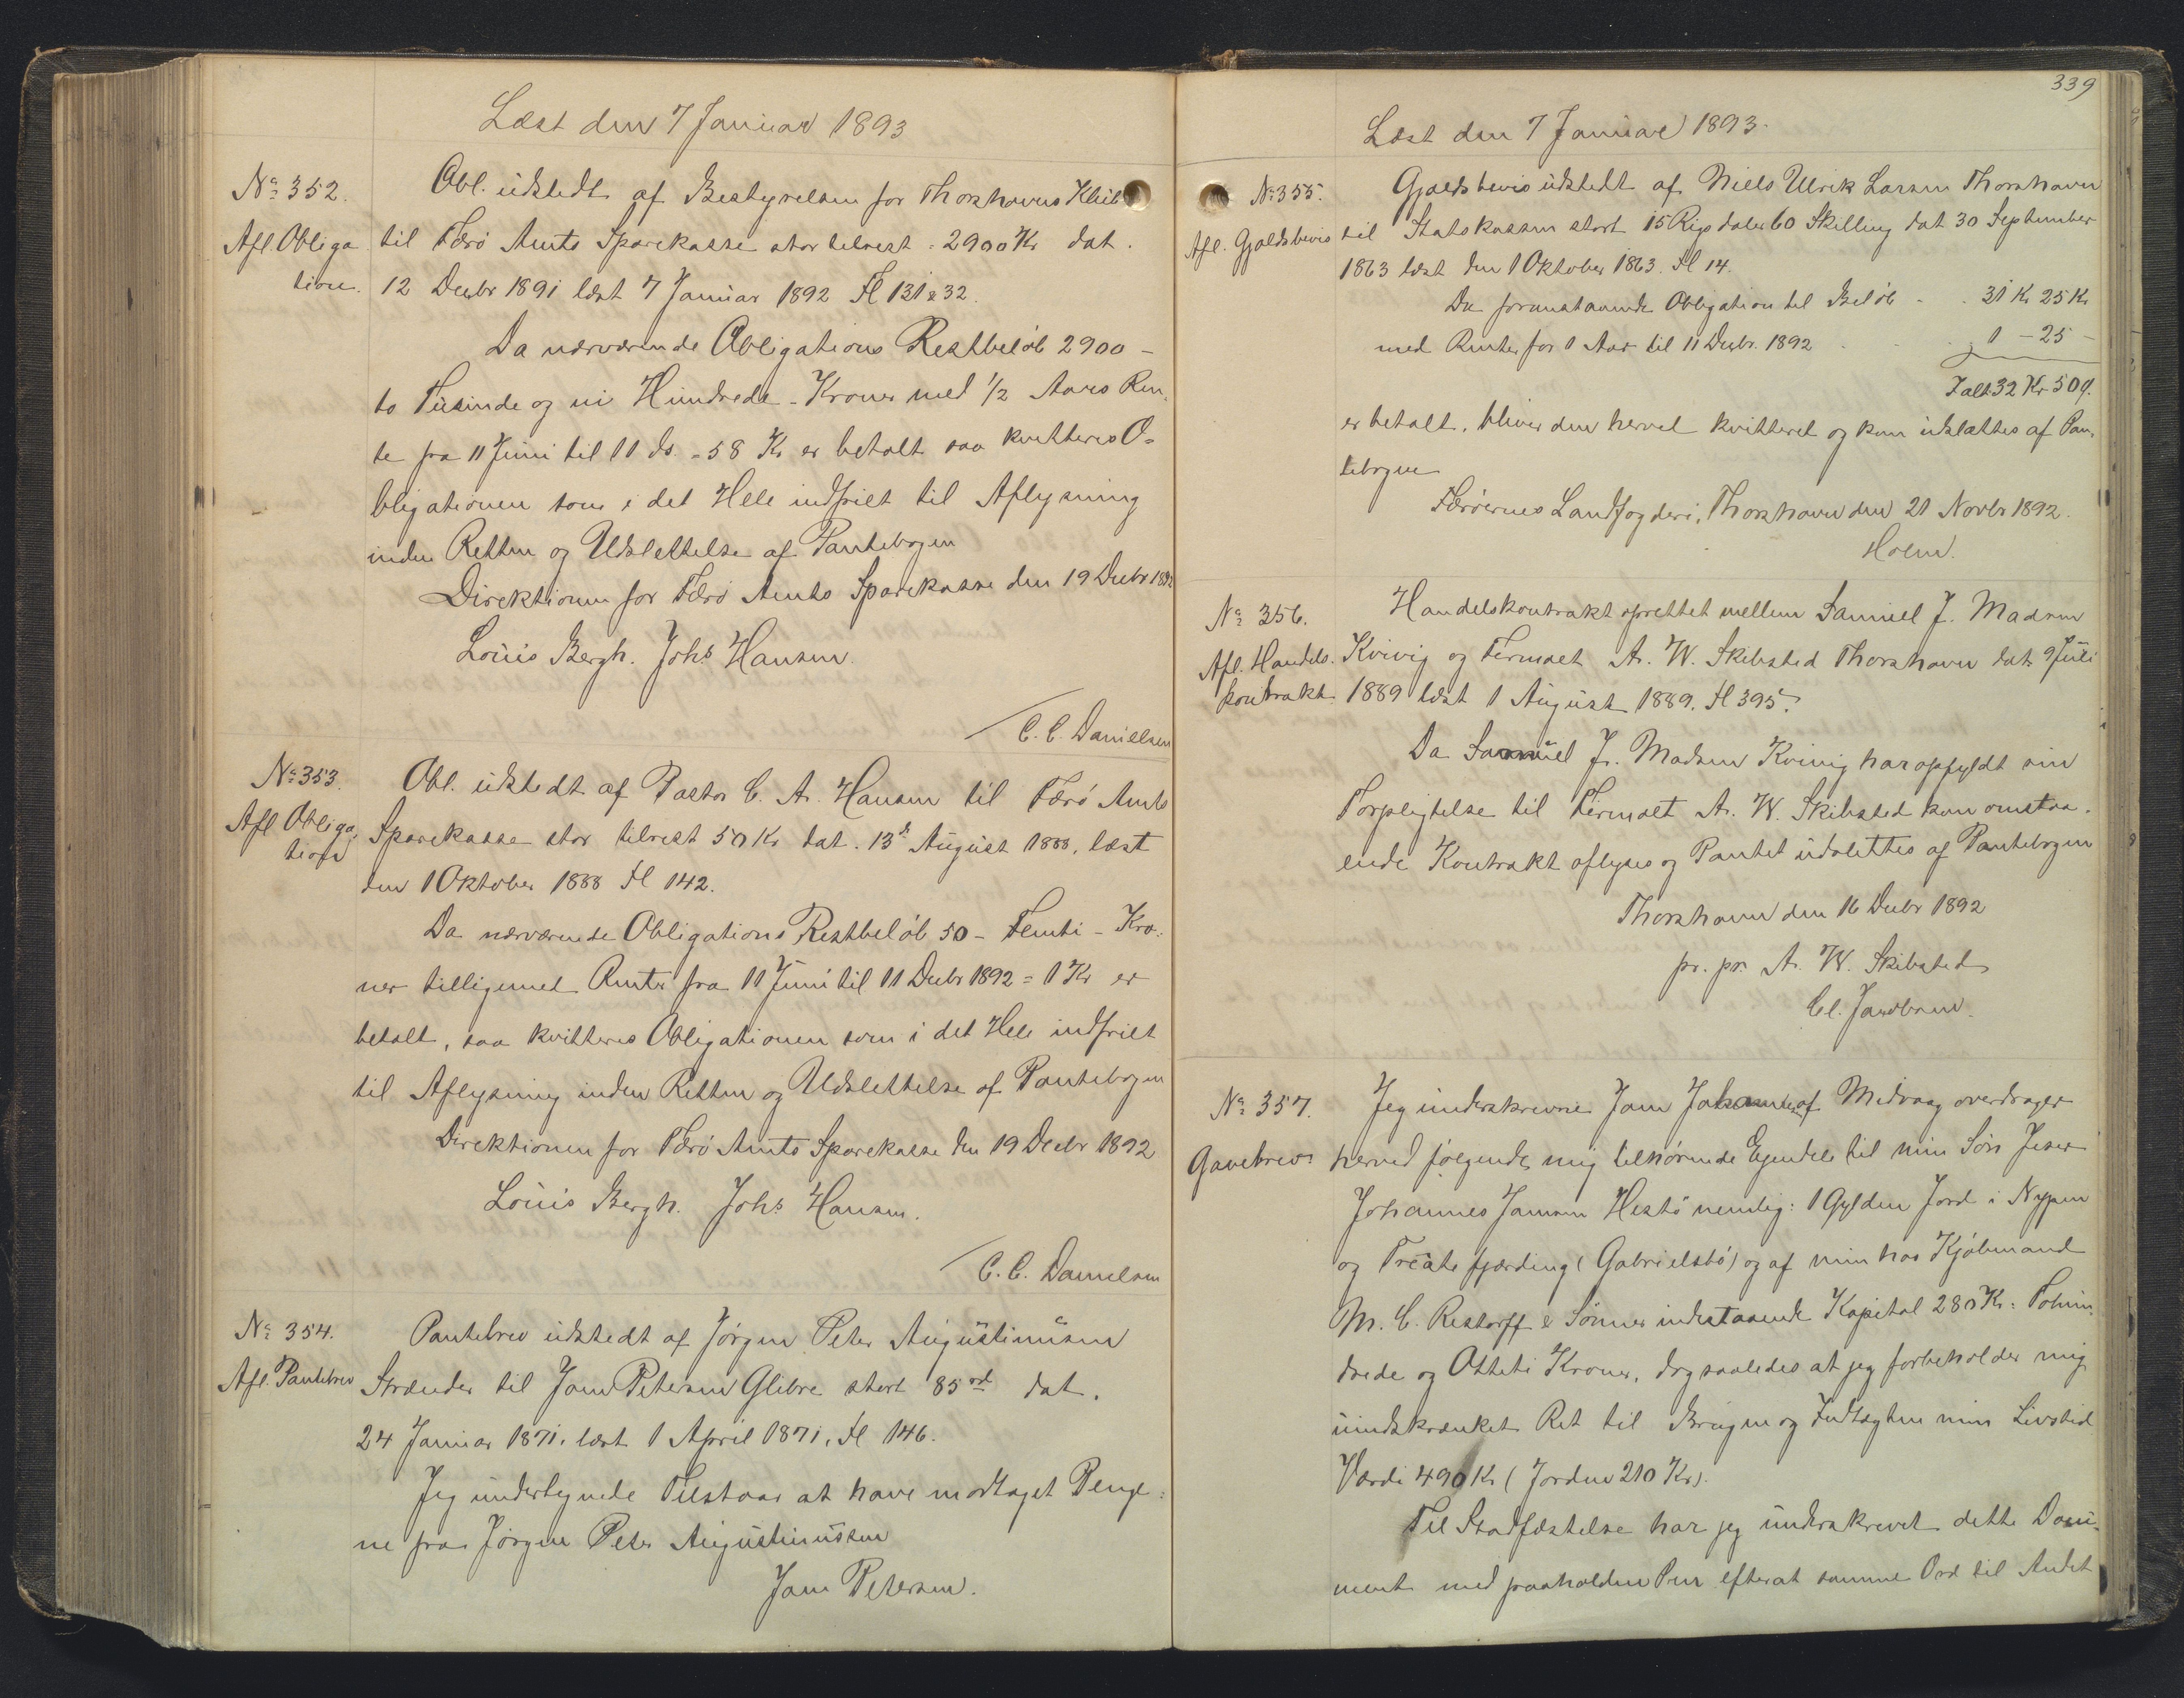 Læst den 7 Januar 1893
No 352.
Afl. Obliga
tion.
Obl. udstedt af Bestyrelsen for Thorshavns Klub
til Færö Amts Sparekasse stor tilrest = 2900 Kr dat.
12 Decbr 1891 læst 7 Januar 1892 Fl 131 & 32.
Da nærværende Obligations Restbelöb 2900 -
to Tusinde og ni Hundrede - Kroner med 1/2 Aars Ren,
te fra 11 Juni til 11 ds. = 58 Kr er betalt saa kvitteres O=
bligationen som i det Hele indfriet til Aflysning
inden Retten og Udslettelse af Pantebogen
Direktionen for Færö Amts Sparekasse den 19 Decbr 1892
Louis Bergh. Johs Hansen.
C. C. Danielsen
No 353.
Afl Obliga,
tion
Obl. udstedt af Pastor C. A. Hansen til Færö Amts
Sparekasse stor tilrest 50 Kr dat. 13d August 1888, læst
den 1 Oktober 1888 Fl 142.
Da nærværende Obligations Restbelöb 50 - Femti - Kro=
ner tilligemed Renter fra 11 Juni til 11 Decbr 1892 = 1 Kr er
betalt, saa kvitteres Obligationen som i det Hele indfriet
til Aflysning inden Retten og Udslettelse af Pantebogen
Direktionen for Færö Amts Sparekasse den 19 Decbr 1892
Louis Bergh. Johs Hansen.
C. C. Danielsen
No 354.
Afl. Pantebrev
Pantebrev udstedt af Jörgen Peter Augustinusen
Strænder til Jam Petersen Glibre stort 85 rd dat.
24 Januar 1871. læst 1 April 1871. Fl 146.
Jeg undertegnede Tilstaar at have modtaget Penge=
ne fra Jörgen Peter Augustinussen
Jam Petersen.
339
Læst den 7 Januar 1893.
No 355.
Afl. Gjældsbevis
Gjældsbevis udstedt af Niels Ulrik Larsen Thorshavn
til Statskassen stort 15 Rigsdaler 60 Skilling dat 30 September
1863 læst den 1 Oktober 1863. Fl 14.
Da foranstaaende Obligation til Belöb - . 31 Kr 25 Kr
med Renter for 1 Aar til 11 Decbr. 1892 . - . 1 - 25 -
Ialt 32 Kr 50 Ø.
er betalt, bliver den herved kvitteret og kan udslættes af Pan,
tebogen
Færöernes Landfogderi, Thorshavn den 21 Novbr 1892.
Holm.
No 356.
Afl. Handels.
kontrakt.
Handelskontrakt oprettet mellem Samuel J. Madsen
Kvivig og Firmaet A. W. Skibsted Thorshavn dat 9 Juli
1889 læst 1 August 1889. Fl 395.
Da Samuel J. Madsen Kvivig har opfyldt sin
Forpligtelse til Firmaet A. W. Skibsted kan omstaa.
ende Kontrakt aflyses og Pantet udslettes af Pantebogen
Thorshavn den 16 Decbr 1892
pr. pr. A. W. Skibsted
Cl. Jacobsen.
No 357.
Gavebrev
Jeg underskrevne Jam Johannes af Midvaag overdrager
herved fölgende, mig tilhörende Ejendele til min Sön Jeser
Johannes Jamsen Hestö nemlig: 1 Gylden Jord i Nypen
og Treatefjærding (Gabrielsbö) og af min hos Kjöbmand
M. C. Restorff & Sönner indestaaende Kapital 280 Kr: Tohun,
drede og Otteti Kroner, dog saaledes at jeg forbeholder mig
uindskrænket Ret til Brugen og Indtægten min Livstid
Værdi 490 Kr (Jorden 210 Kr).
Til Stadfæstelse har jeg underskrevet dette Docu.
ment med paaholden Pen efterat samme Ord til Andet